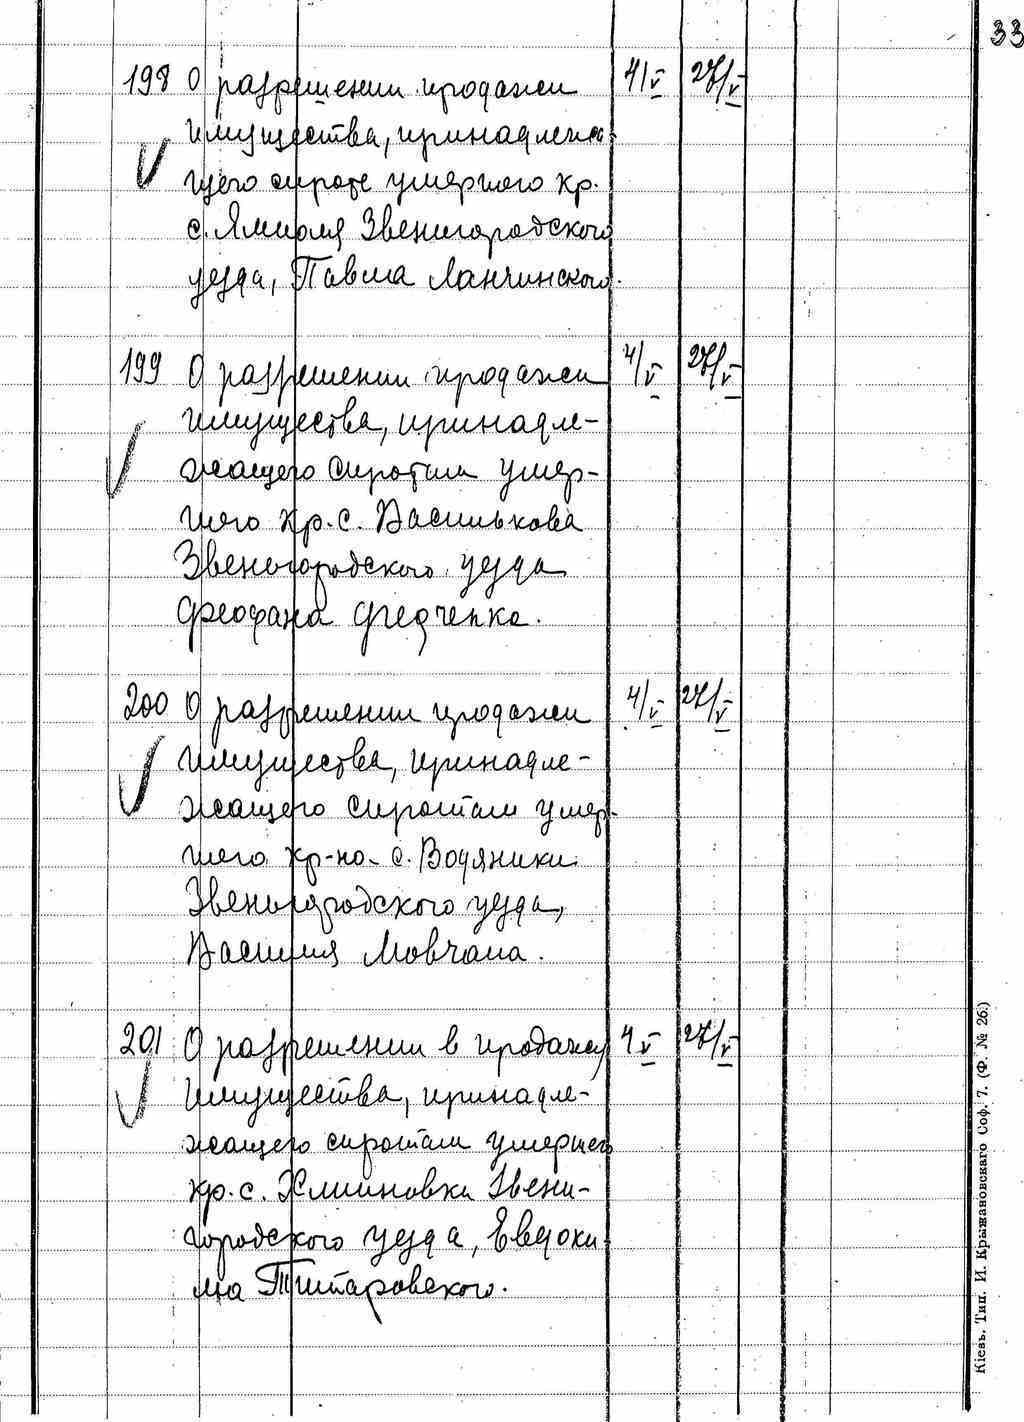 33
198 О разрешении продажи 4/V 27/V
имущества, принадлежа-
щего сироте умершого кр.
с. Ямполя Звенигородского
уезда, Павла Ланчинского.
199 О разрешении продажи 4/V 27/V
имущества, принадле-
жащего сиротам умер-
шего кр. с. Василькова
Звенигородского уезда
Феофана Федченка.
200 О разрешении продажи 4/V 27/V
имущества, принадле-
жащего сиротам умер-
шего кр-на с. Водяники
Звенигородского уезда,
Василия Мовчана.
201 О разрешении в продаже 4 V 27/V
имущества, принадле-
жащего сиротам умершего
кр. с. Звени-
городского уезда, Евдоки-
ма Титаровского.
Кіевъ. Тип. И. Крыжановскаго Соф. 7. (Ф. № 26.)